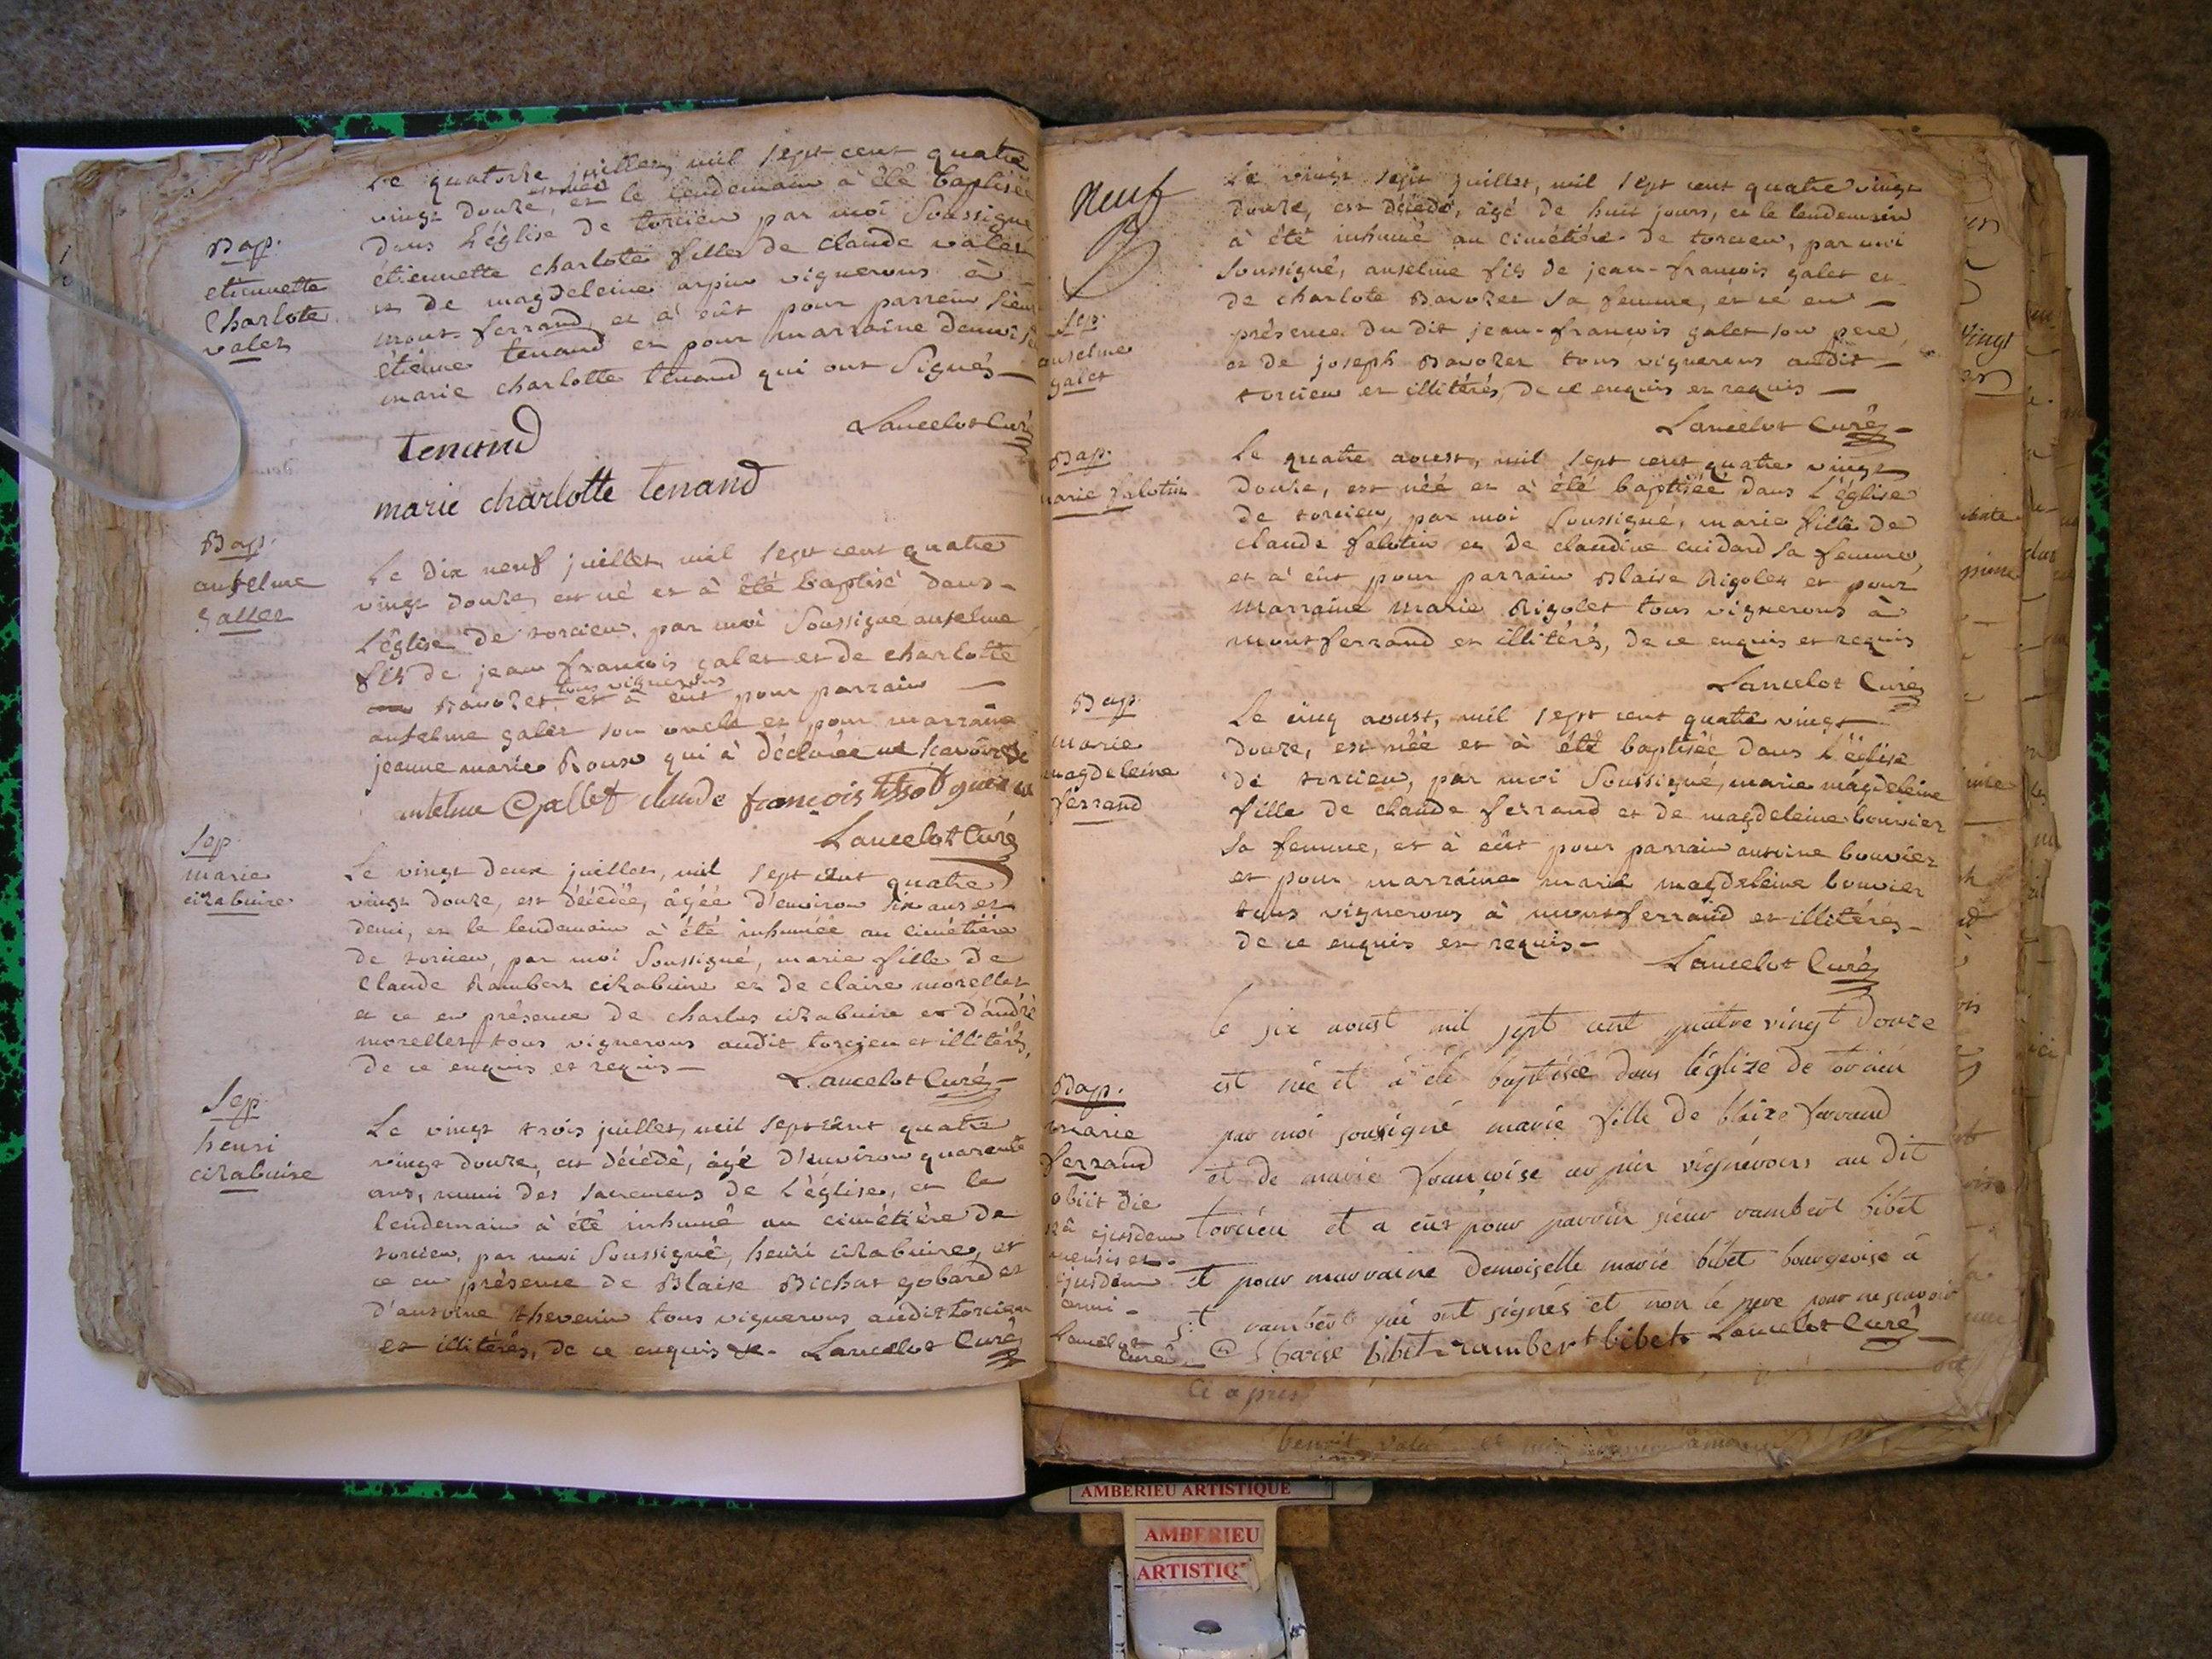 Le quatorze juillet, mil sept cent quatre
est née
vingt douze, et le lendemain à été baptisée
dans l'église de torcieu par moi Soussigné
étiennette charlote fille de Claude valet
et de magdeleine arpin vignerons à
mont-ferrand, et à eût pour parrein sieur
étienne tenand et pour marraine demoiselle
marie charlotte tenand qui ont Signés
Bap.
etiennette
Charlote
valet
Lancelot Curé
tenand
marie charlotte tenand
Bap.
anselme
gallet
Le dix neuf juillet, mil sept cent quatre
vingt douze, est né et à été baptisé dans
l'église de torcieu, par moi Soussigné anselme
fils de jean françois galet et de charlotte
tous vignerons
Bavozet, et à eut pour parrain
anselme galet son oncle et pour marraine
jeanne marie Roux qui à déclarée ne scavoir
antelme Gallet claude françois tissot
Lancelot Curé
Sep.
marie
cizabuire
Le vingt deux juillet, mil sept cent quatre
vingt douze, est décédée, âgée d'environ six ans et
demi, et le lendemain à été inhumée au cimétiére
de torcieu, par moi Soussigné, marie fille de
Claude Rambert cizabuire et de claire morellet
et ce en présence de charles cizabuire et d'andré
morellet tous vignerons audit torcieu et illitérés,
de ce enquis et requis
Lancelot Curé
Sep.
henri
cizabuire
Le vingt trois juillet, mil sept cent quatre
vingt douze, est décédé, âgé d'environ quarente
ans, muni des sacremens de l'église, et le
lendemain à été inhumé au cimétiére de
torcieu, par moi Soussigné, henri cizabuire, et
ce en présence de Blaise Bichat gobard et
d'antoine thevenin tous vignerons audit torcieu
et illitérés, de ce enquis &. Lancelot Curé
neuf
Sep.
anselme
galet
Le vingt sept juillet, mil sept cent quatre vingt
douze, est décédé, âgé de huit jours, et le lendemain
à été inhumé au cimétiére de torcieu, par moi
Soussigné, anselme fils de jean-françois galet et
de charlote Bavozet sa femme, et cé en
présence du dit jean-françois galet son pere,
et de joseph Bavozet tous vignerons audit
torcieu et illitérés, de ce enquis et requis
Lancelot Curé
Bap.
marie falotin
Le quatre aoust, mil sept cent quatre vingt
douze, est née et à été baptisée dans l'église
de torcieu, par moi Soussigné, marie fille de
claude falotin et de claudine cuidard sa femme,
et à eût pour parrain Blaise Rigolet et pour
marraine marie Rigolet tous vignerons à
montferrand et illitérés, de ce enquis et requis
Lancelot Curé
Bap.
marie
magdeleine
ferrand
Le cinq aoust, mil sept cent quatre vingt
douze, est née et à été baptisée dans l'église
de torcieu, par moi Soussigné, marie magdeleine
fille de claude ferrand et de magdeleine bouvier
sa femme, et à eût pour parrain antoine bouvier
et pour marraine marie magdeleine bouvier
tous vignerons à montferrand et illitérés
de ce enquis et requis
Lancelot Curé
Bap.
marie
ferrand
obiit die
ejusdem
mensis et
ejusdem
anni
Lancelot
curé
le six aoust mil sept cent quatre vingt douze
est née et à été baptisée dans léglize de torcieu
par moi soussigné marie fille de blaize farrand
et de marie francoise arpin vignérons au dit
torcieu et a eüt pour parrin sieur rambert bibet
et pour marraine demoiselle marie bibet bourgeoise à
st rambert qui ont signés et non le pere pour ne scavoir
bibet rambert bibet Lancelot Curé
Ci apres
benoit valet
AMBERIEU ARTISTIQUE
AMBERIEU
ARTISTIQ